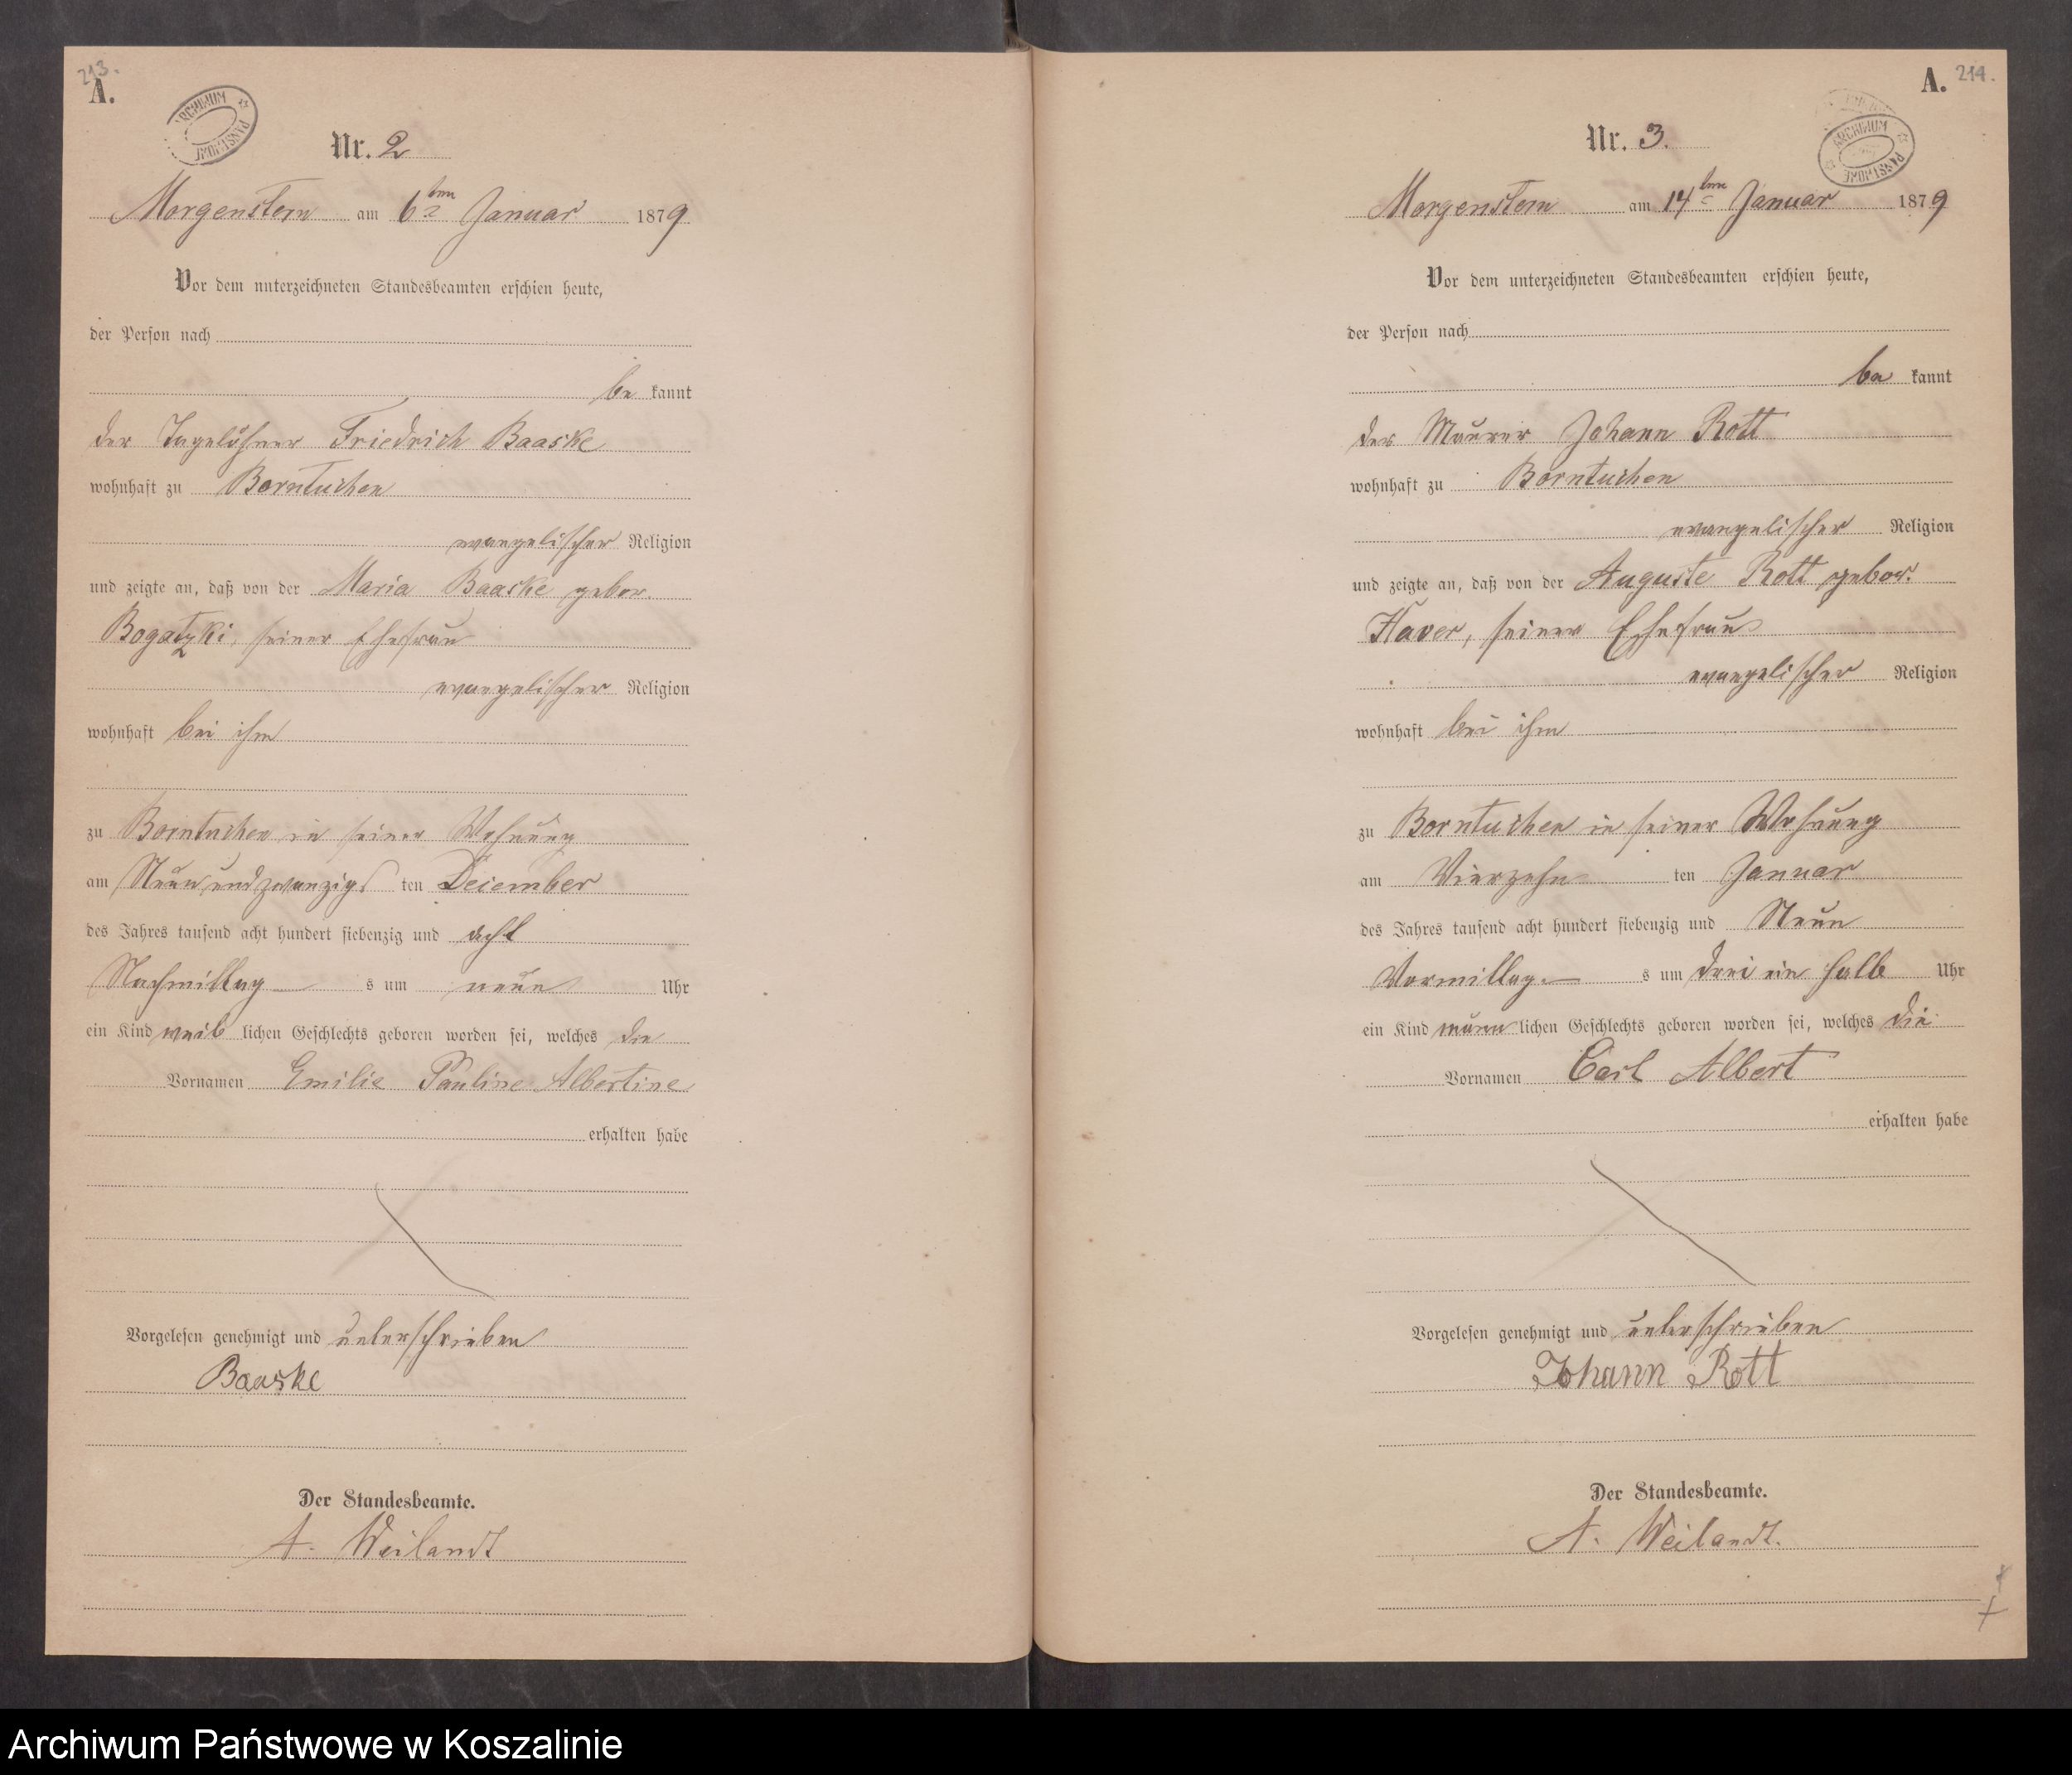 213.
A.
ARCHIWUM PAŃSTWOWE
Nr. 2
Morgenstern am 6ten Januar 1879
Vor dem unterzeichneten Standesbeamten erschien heute,
der Person nach
be kannt
der Tagelöhner Friedrich Baaske
wohnhaft zu Borntuchen
evangelischer Religion
und zeigte an, daß von der Maria Baaske gebor.
Bogatzki, seiner Ehefrau
evangelischer Religion
wohnhaft bei ihm
zu Borntuchen in seiner Wohnung
am Neun und zwanzigs ten Dezember
des Jahres tausend acht hundert siebenzig und acht
Nachmittag s um neun Uhr
ein Kind weib lichen Geschlechts geboren worden sei, welches die
Vornamen Emilie Pauline Albertine
erhalten habe
Vorgelesen genehmigt und unterschrieben
Baaske
Der Standesbeamte.
A. Weilandt
A. 214.
ARCHIWUM PAŃSTWOWE
Nr. 3.
Morgenstern am 14ten Januar 1879
Vor dem unterzeichneten Standesbeamten erschien heute,
der Person nach
be kannt
der Maurer Johann Rott
wohnhaft zu Borntuchen
evangelischer Religion
und zeigte an, daß von der Auguste Rott gebor.
Haver, seiner Ehefrau
evangelischer Religion
wohnhaft bei ihm
zu Borntuchen in seiner Wohnung
am Vierzehn ten Januar
des Jahres tausend acht hundert siebenzig und Neun
Vormittag s um drei ein halb Uhr
ein Kind männ lichen Geschlechts geboren worden sei, welches die
Vornamen Carl Albert
erhalten habe
Vorgelesen genehmigt und unterschrieben
Johann Rott
Der Standesbeamte.
A. Weilandt.
Archiwum Państwowe w Koszalinie